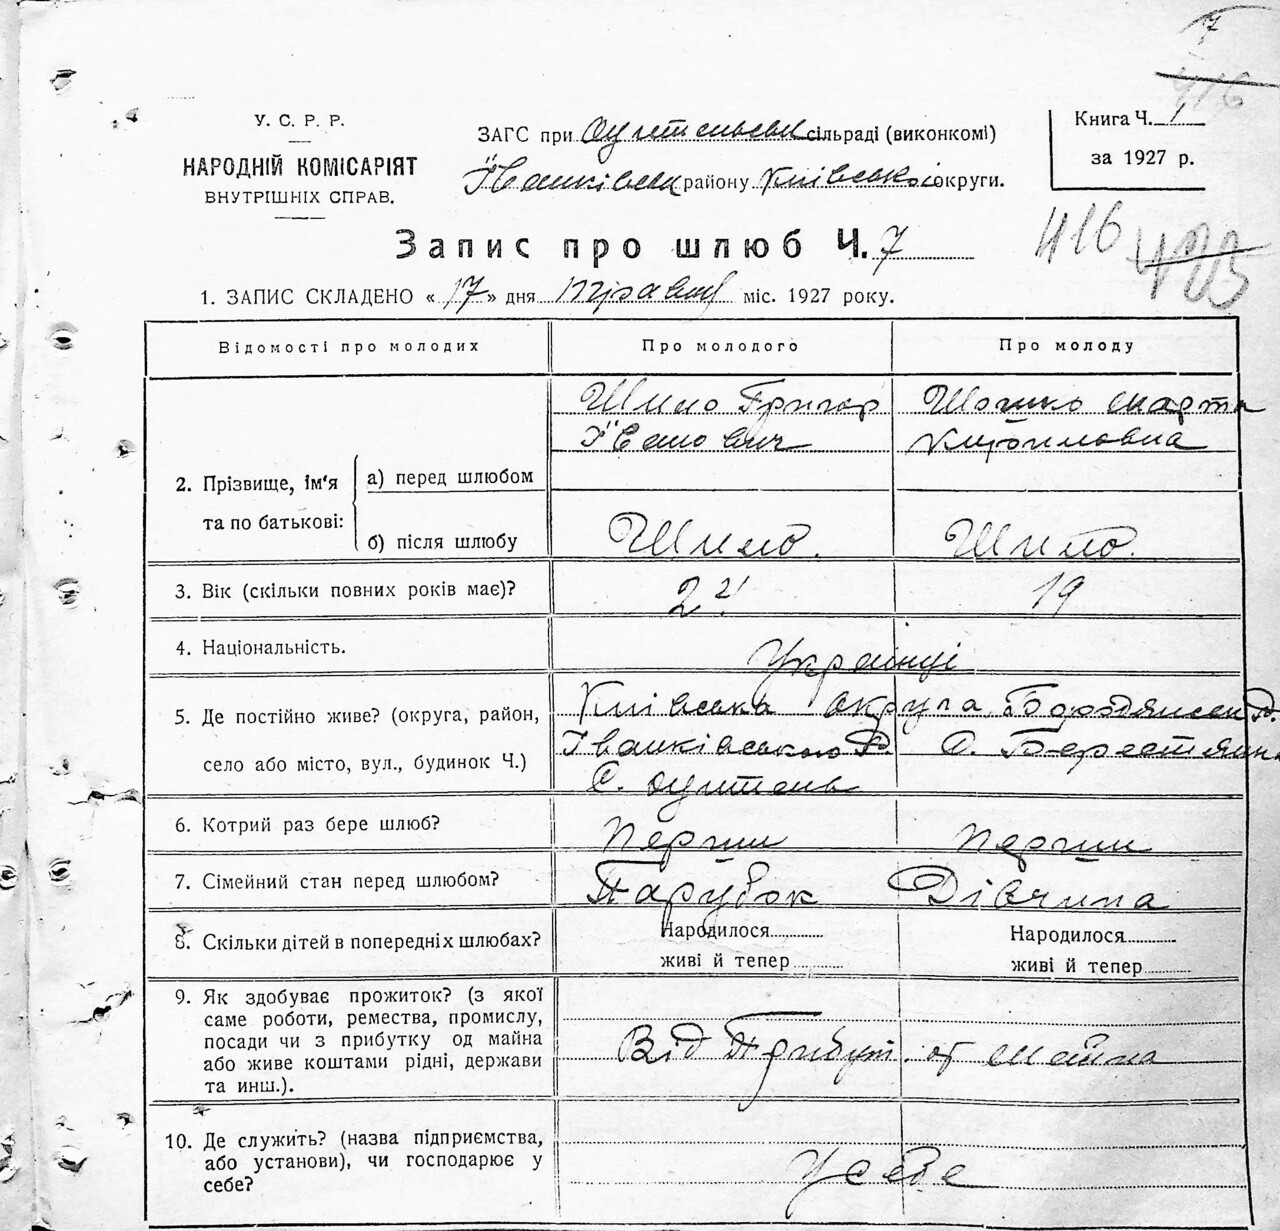 7
416
У. С. Р. Р.
НАРОДНІЙ КОМІСАРІЯТ
ВНУТРІШНІХ СПРАВ.
ЗАГС при сільраді (виконкомі)
Іванківськ району Київської округи.
Книга Ч. 1
за 1927 р.
Запис про шлюб Ч. 7
416
1. ЗАПИС СКЛАДЕНО « 17 » дня травня міс. 1927 року.
Відомості про молодих Про молодого Про молоду
2. Прізвище, ім'я та по батькові:
а) перед шлюбом
Шило Григор Іванович
Марта
б) після шлюбу
Шило. Шило.
3. Вік (скільки повних років має)? 19
4. Національність. Українці
5. Де постійно живе? (округа, район,
село або місто, вул., будинок Ч.)
Київська округа Бородянськ Р.
Іванківського Р. С. Берестянка
С.
6. Котрий раз бере шлюб? Перший Перший
7. Сімейний стан перед шлюбом? Парубок Дівчина
8. Скільки дітей в попередніх шлюбах? Народилося Народилося
живі й тепер живі й тепер
9. Як здобуває прожиток? (з якої
саме роботи, ремества, промислу,
посади чи з прибутку од майна
або живе коштами рідні, держави
та инш.).
Від Прибут. от майна
10. Де служить? (назва підприємства,
або установи), чи господарює у
себе?
У себе